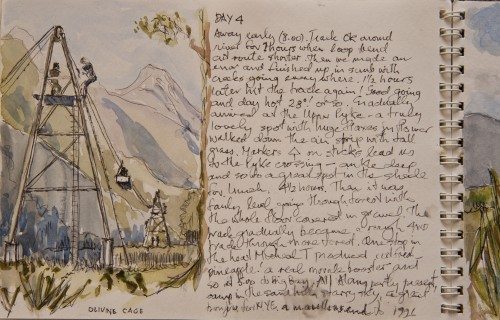 DAY 4
Away early (8.00). Track OK around
river for 2 hours when loop bend
cut route shorter. Then we made an
error and finished up in scrub with
creeks going every where. 1½ hours
later hit the track again! Good going
and day hot 28° or so. Gradually
arrived at the Upper Pyke - a truly
lovely spot with huge flaxes in flower
walked down the air strip with tall
grass. Markers on sticks lead us
to the Pyke crossing - ankle deep
and so to a great spot in the shade
for lunch. 4½ hours. Then it was
fairly level going through forest with
the whole floor covered in ground. The
track gradually became a rough 4WD
track through more forest. One stop in
the heat Michael T produced
pineapple! a real morale booster and
so at 5pm Big Bay. All along party
camp in the sand
for NYE, a end to 1991
DRIVING CAGE